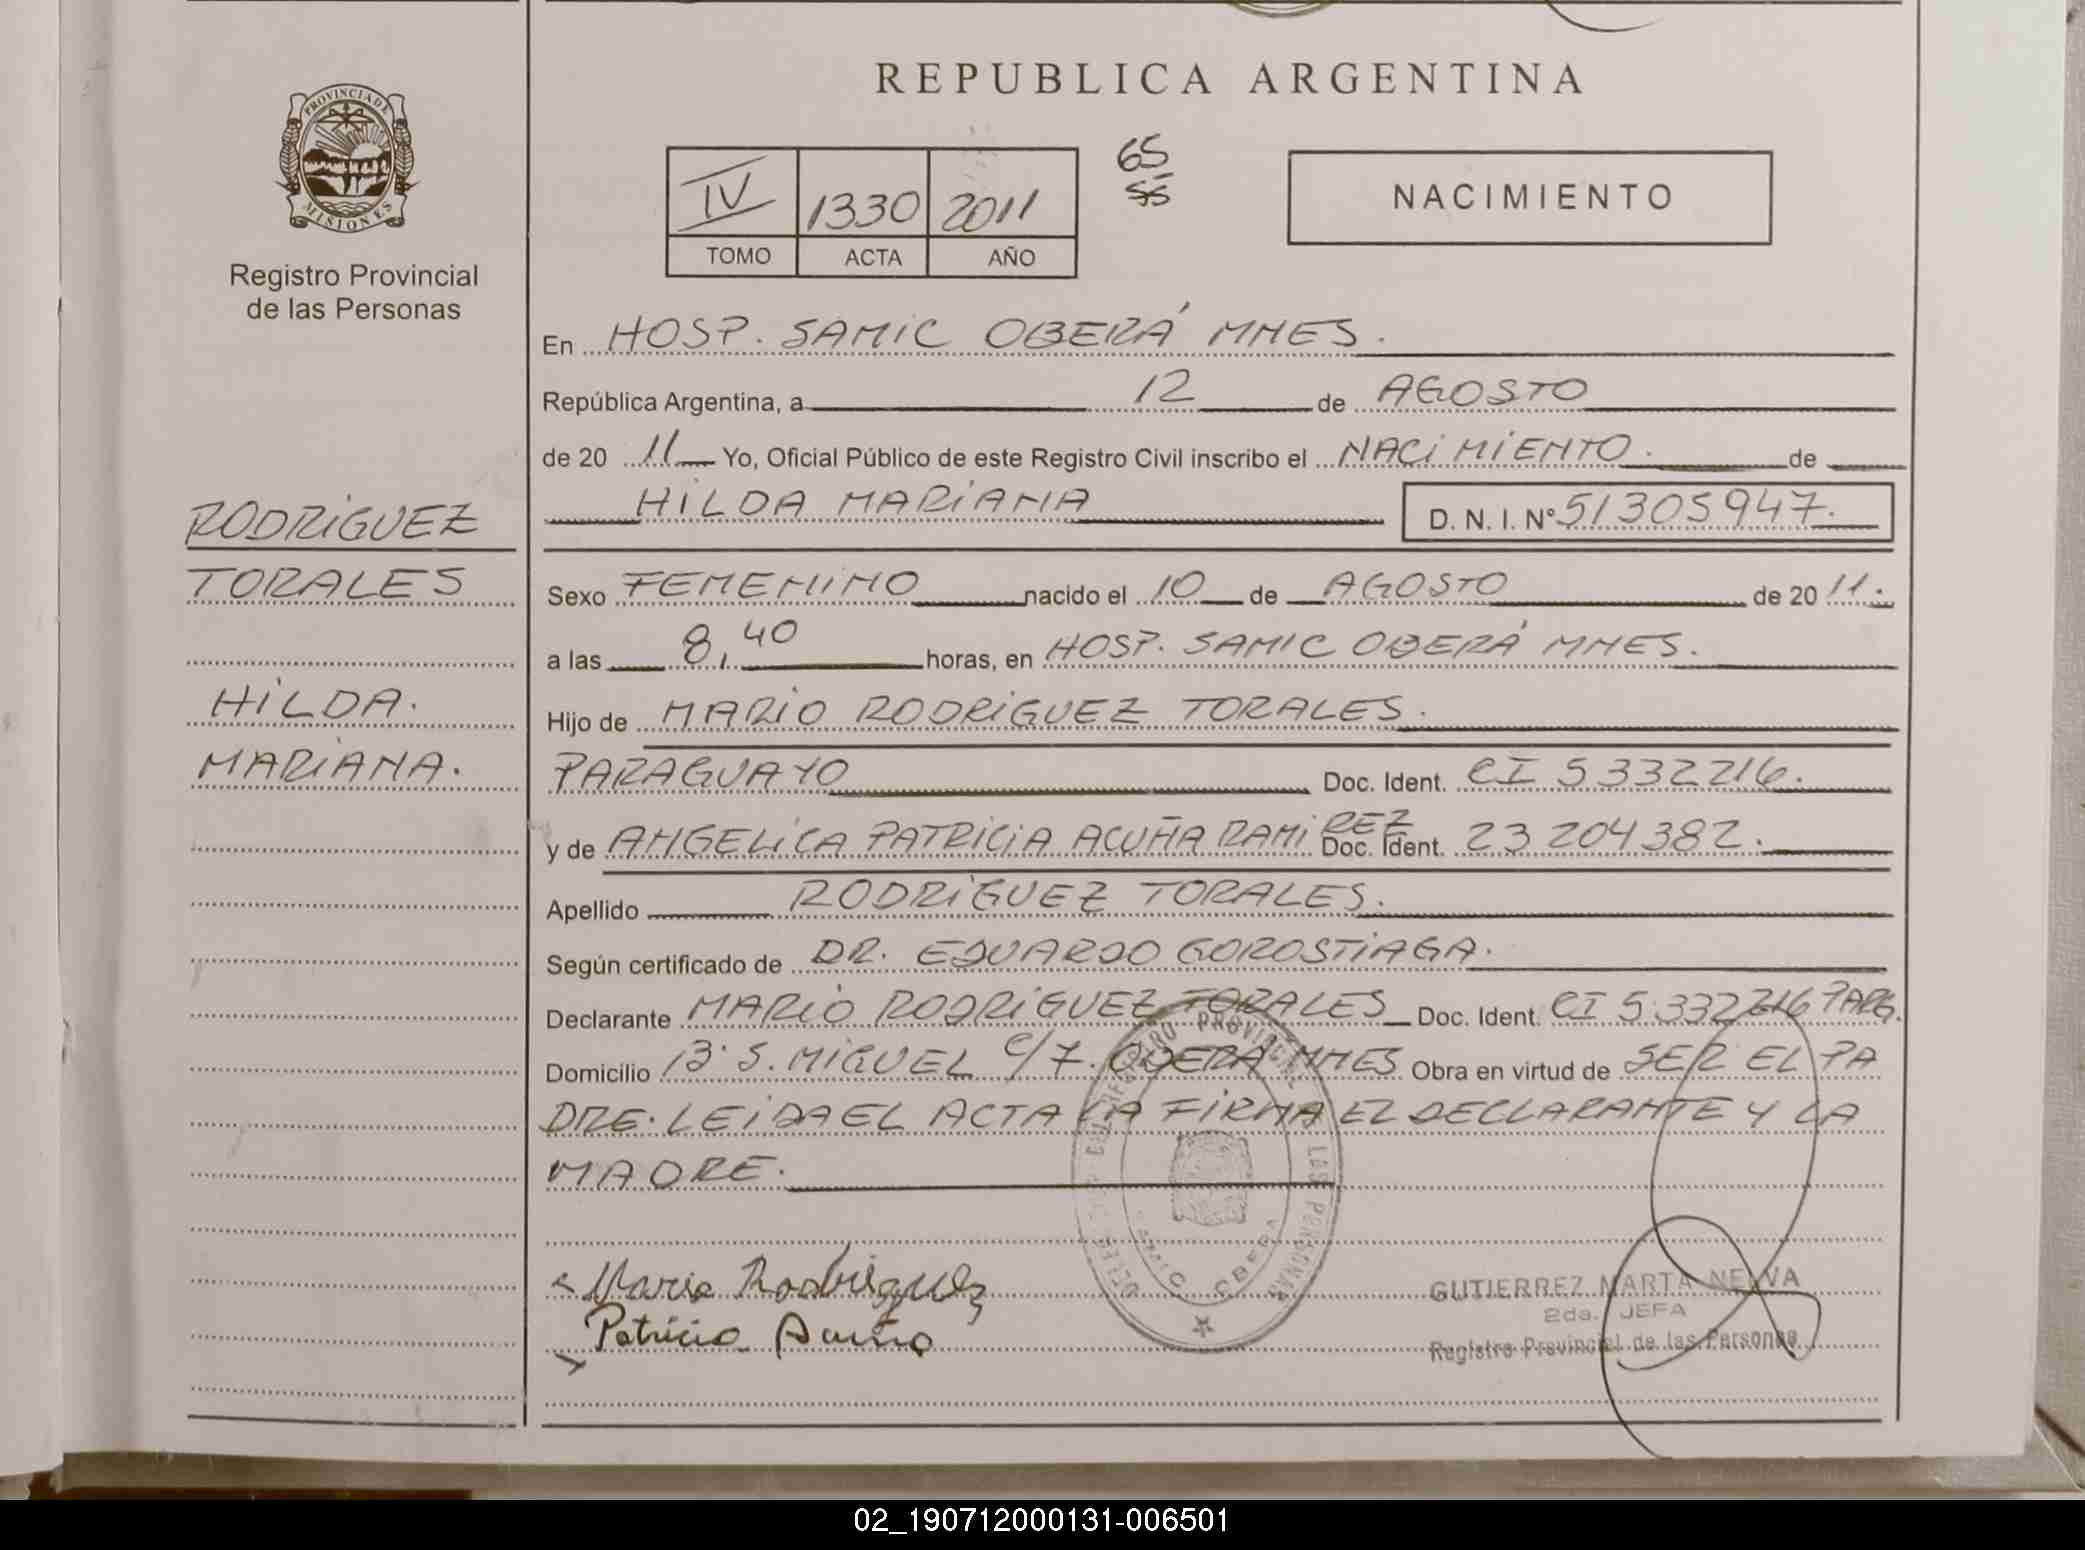 REPUBLICA ARGENTINA
PROVINCIA DE
MISIONES
Registro Provincial
de las Personas
IV 1330 2011
TOMO ACTA AÑO
65
55
NACIMIENTO
En HOSP. SAMIC OBERÁ MNES.
República Argentina, a 12 de AGOSTO
de 20 11 Yo, Oficial Público de este Registro Civil inscribo el NACIMIENTO. de
HILDA MARIANA D. N. I. Nº 51305947.
RODRIGUEZ
TORALES
HILDA.
MARIANA.
Sexo FEMENINO nacido el 10 de AGOSTO de 20 11.
a las 8,40 horas, en HOSP. SAMIC OBERÁ MNES.
Hijo de MARIO RODRIGUEZ TORALES.
PARAGUAYO Doc. Ident. CI 5332216.
y de ANGELICA PATRICIA ACUÑA RAMIREZ Doc. Ident. 23204382.
Apellido RODRIGUEZ TORALES.
Según certificado de DR. EDUARDO GOROSTIAGA.
Declarante MARIO RODRIGUEZ TORALES Doc. Ident. CI 5.332216 PARG.
Domicilio Bº S. MIGUEL C/7. OBERA MNES Obra en virtud de SER EL PA
DRE. LEIDA EL ACTA LA FIRMA EL DECLARANTE Y LA
MADRE.
Mario Rodriguez
Patricia Acuña
SAMIC OBERA
GUTIERREZ MARTA NELVA
2da. JEFA
Registro Provincial de las Personas
02_190712000131-006501